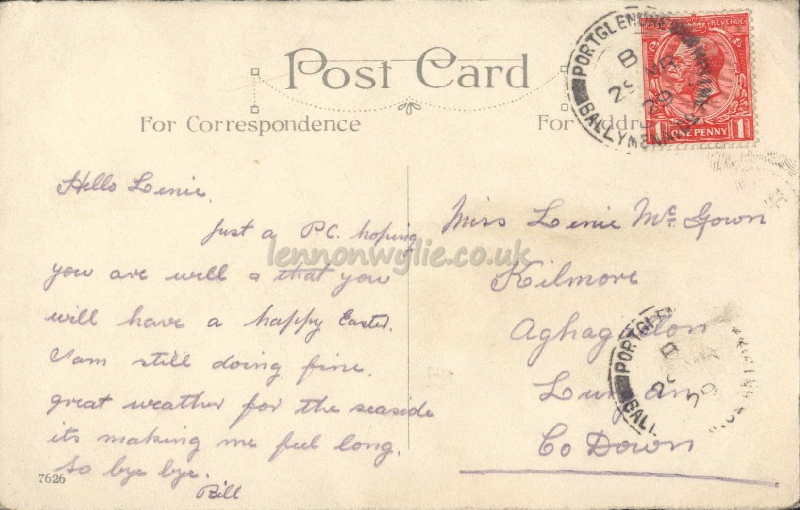 Post Card
For Correspondence
For Addre
POSTAGE REVENUE
ONE PENNY
1 1
PORTGLENONE
B
29 MR
29
BALLYMENA
Hello Lenie.
Just a P.C. hoping
you are well & that you
will have a happy Easter.
I am still doing fine.
great weather for the seaside
its making me feel long.
So bye bye.
Bill
Miss Lenie McGown
Kilmore
Aghagallon
Lurgan
Co Down
PORTGLE
B
29
BALL
7626
lennonwylie.co.uk